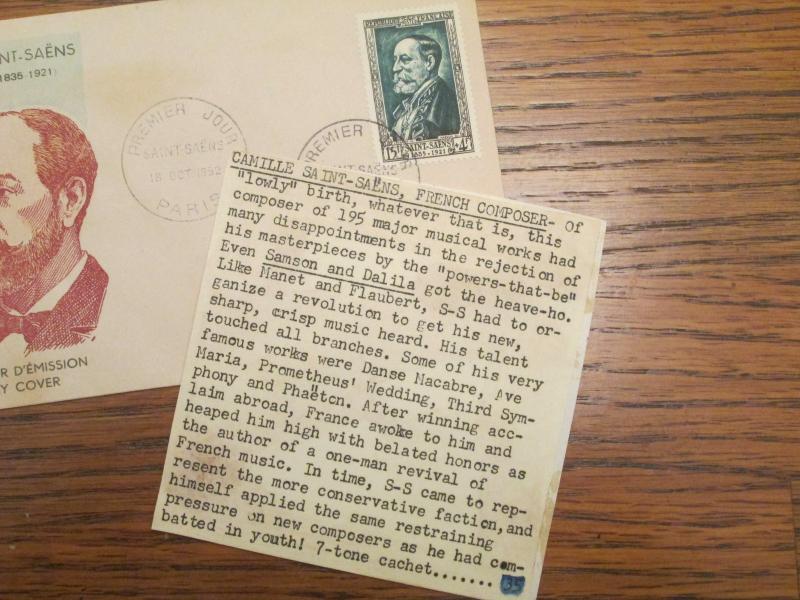 NT-SAËNS
1835-1921)
PREMIER JOUR
SAINT-SAËNS
18 OCT 1952
PARIS
R D'ÉMISSION
Y COVER
REPUBLIQUE FRANÇAISE
POSTES
15F SAINT-SAËNS +4F
1835-1921
PREMIER
CAMILLE SAINT-SAËNS, FRENCH COMPOSER- Of
"lowly" birth, whatever that is, this
composer of 195 major musical works had
many disappointments in the rejection of
his masterpieces by the "powers-that-be"
Even Samson and Dalila got the heave-ho.
Like Manet and Flaubert, S-S had to or-
ganize a revolution to get his new,
sharp, crisp music heard. His talent
touched all branches. Some of his very
famous works were Danse Macabre, Ave
Maria, Prometheus' Wedding, Third Sym-
phony and Phaëton. After winning acc-
laim abroad, France awoke to him and
heaped him high with belated honors as
the author of a one-man revival of
French music. In time, S-S came to rep-
resent the more conservative faction,and
himself applied the same restraining
pressure on new composers as he had com-
batted in youth! 7-tone cachet....... 35